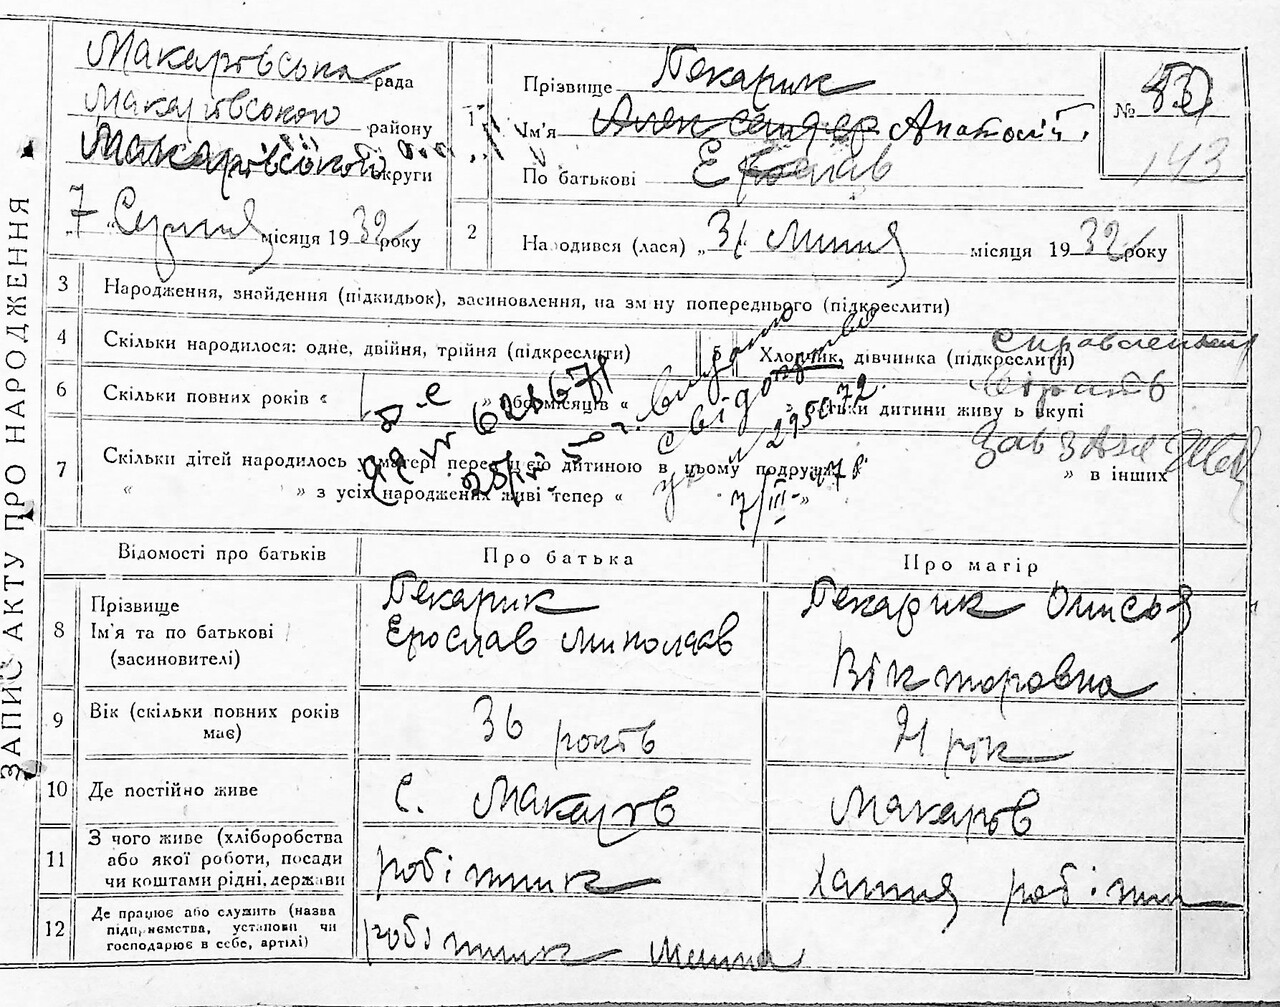 ЗАПИС АКТУ ПРО НАРОДЖЕННЯ
Макарівська рада
Макарівського району
Макарівського округи
„7" Серпня місяця 1932 року
1
Прізвище Пекарик
Ім'я Александр Анатолій.
По батькові
№
143
2
Народився (лася) „31 Липня місяця 1932 року
3 Народження, знайдення (підкидьок), засиновлення, на зміну попереднього (підкреслити)
4 Скільки народилося: одне, двійня, трійня (підкреслити)
5 Хлопчик, дівчинка (підкреслити)
6 Скільки повних років « » або місяців « » батьки дитини живуть вкупі
7 Скільки дітей народилось у матері перед цією дитиною в цьому подружжі » в інших
« » з усіх народжених живі тепер « »
628671
видано
свідоцтво
295072
7/III-
справлення
вірить
Зав ЗАГС
Відомості про батьків
Про батька
Про матір
8 Прізвище
Ім'я та по батькові
(засиновителі)
Пекарик
Ерослав Миколаів
Пекарик Олисья
Вікторовна
9 Вік (скільки повних років має)
36 років
21 рік
10 Де постійно живе
с. Макарів
Макарів
11 З чого живе (хліборобства
або якої роботи, посади
чи коштами рідні, держави
робітник
Хатня робітни
12 Де працює або служить (назва
підприємства, установи чи
господарює в себе, артілі)
робітник